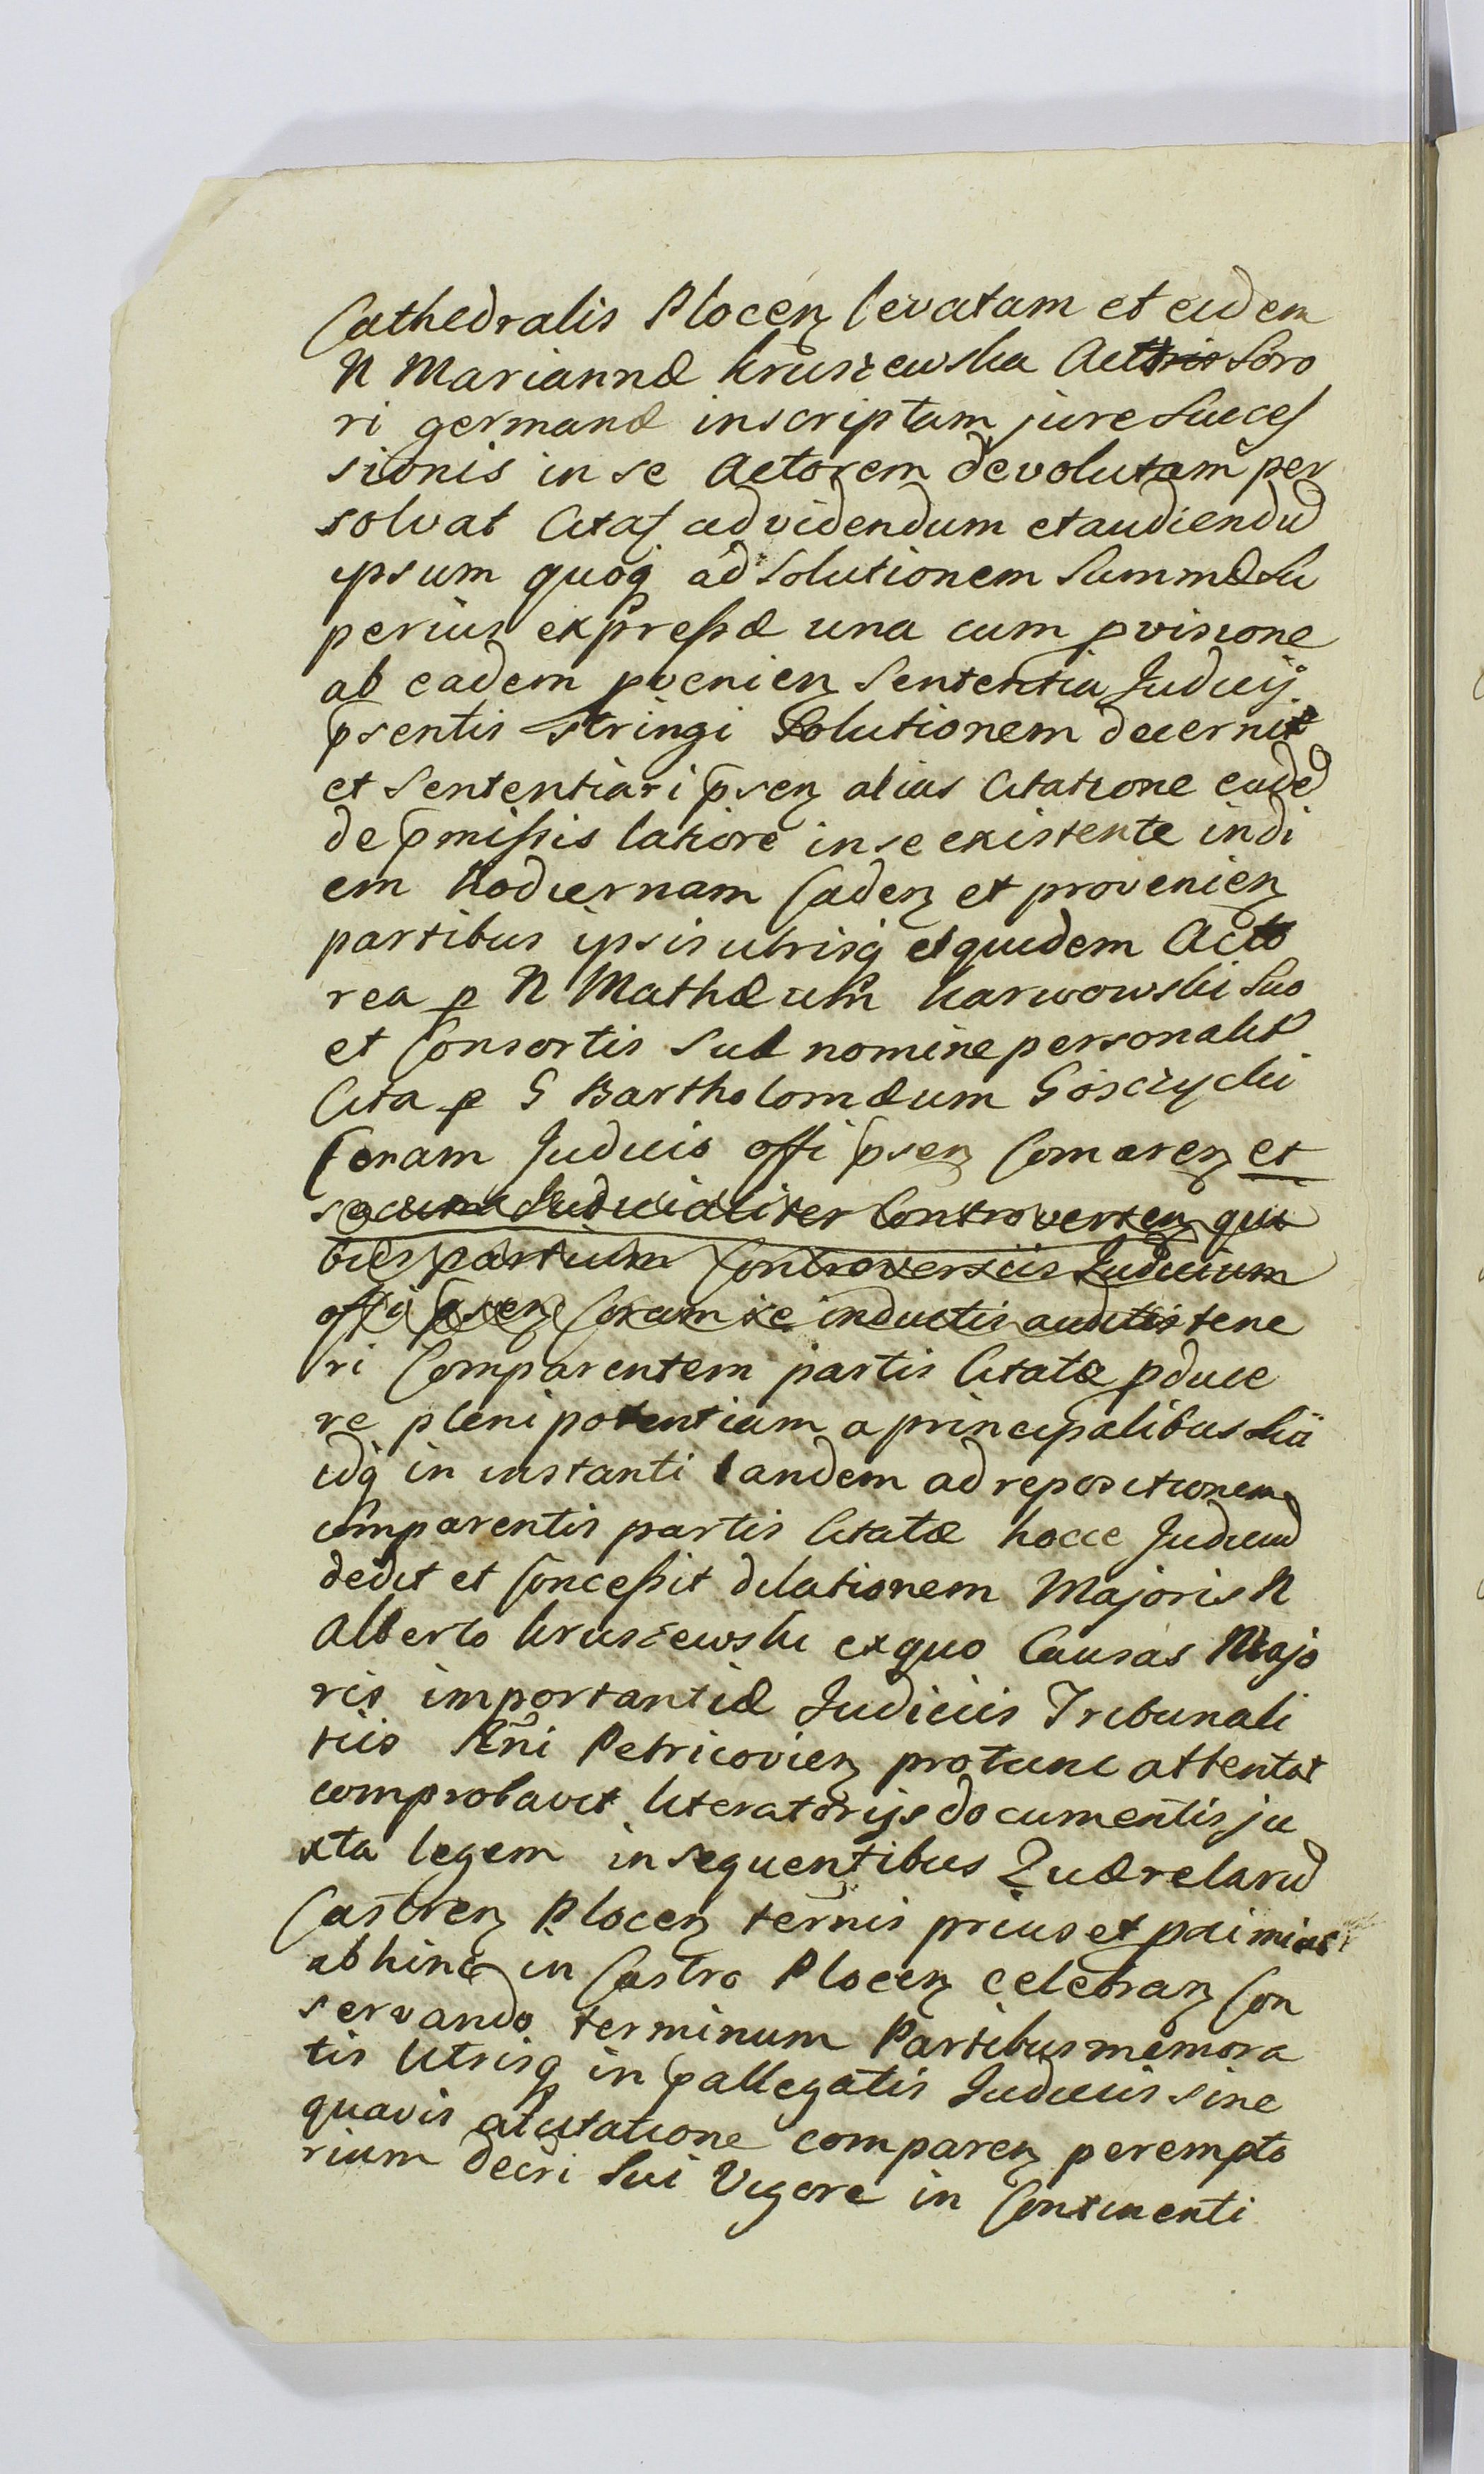 Cathedralis Plocen levatam et eidem
N Mariannæ Kruszewska Actris Soro
ri germanæ inscriptam jure Succes
sionis in se Actorem devolutam per
solvat Citat ad videndum et audiendū
ipsum quoq ad Solutionem Summæ Su
perius expressæ una cum pvisione
ab eadem pvenien Sententia Judicij
psentis stringi Solutionem decernit
et Sententiari psen alias Citatione eadē
de pmissis latiore in se existente in di
em hodiernam Caden et provenien
partibus ipsis utrisq et quidem Acto
rea p N Mathæum Karwowski Suo
et Consortis Suæ nomine personalit
Cita p G Bartholomæum Gosczycki
Coram Judicio offi psen Comaren et
secum Judicialiter Controverten qui
bus partium Controversiis Judicium
offi psen Coram se inductis auditis tene
ri Comparentem partis Citatæ pduce
re plenipotentiam a principalibus Sui
idq in instanti tandem ad repositionem
comparentis partis Citatæ hocce Judiciū
dedit et Concessit dilationem Majoris N
Alberto Kruszewski ex quo Causas Majo
ris importantiæ Judiciis Tribunali
tiis Rni Petricovien protunc attentat
comprobavit literatorijs documentis ju
xta legem in sequentibus Quærelarū
Castren Plocen ternis prius et primis
abhinc in Castro Plocen celebran Con
servando terminum Partibus memora
tis Utrisq in pallegatis Judiciis sine
quavis adcitatione comparen perempto
rium decri Sui Vigore in Continenti